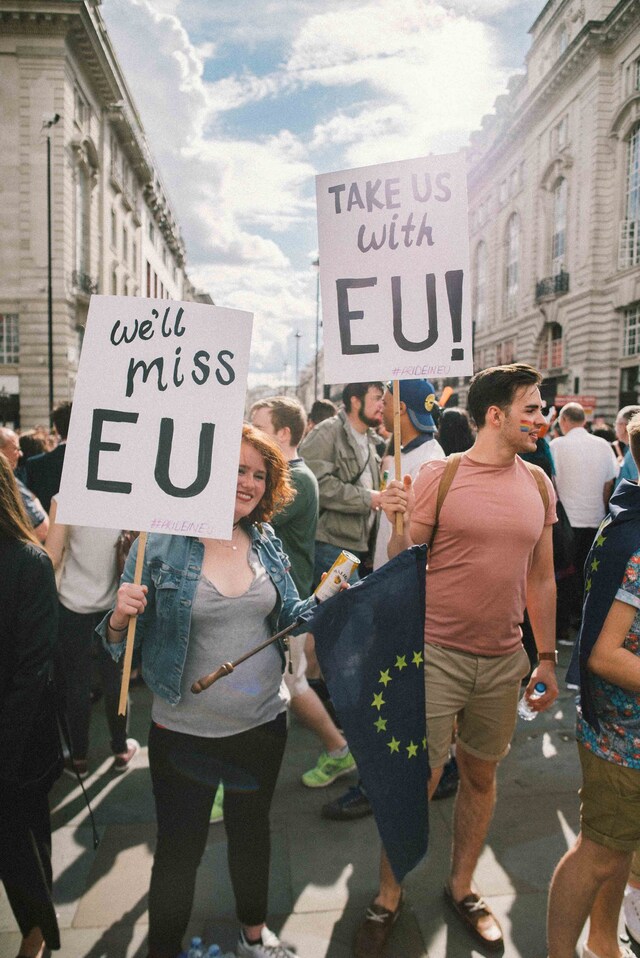 TAKE US
with
EU!
#PRIDEINEU
we'll
miss
EU
#PRIDEINEU